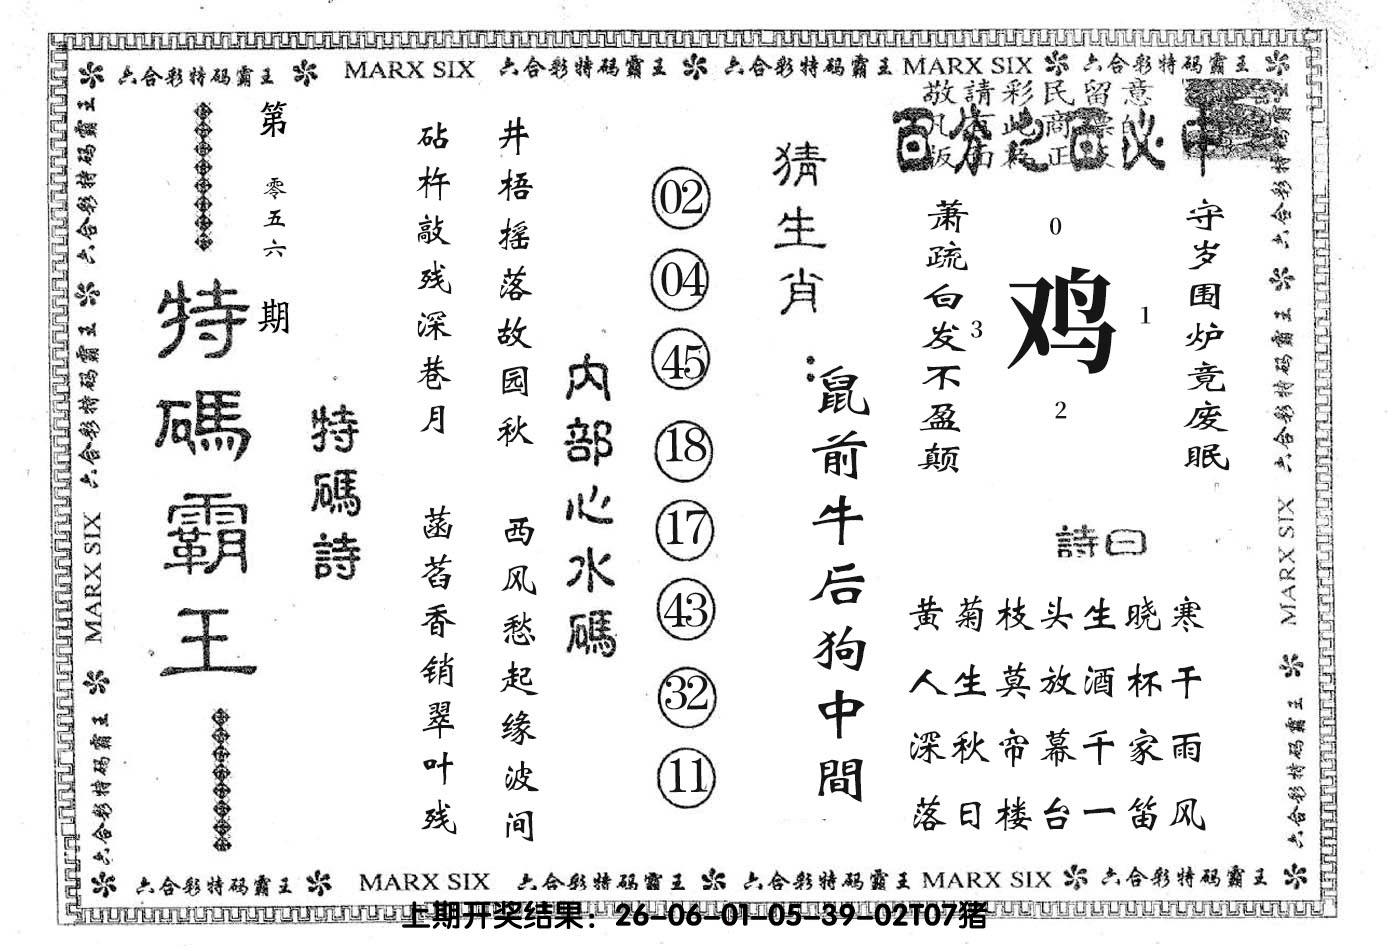 六合彩特码霸王 MARX SIX 六合彩特码霸王 六合彩特码霸王 MARX SIX 六合彩特码霸王
敬請彩民留意
百分之百必中
守岁围炉竟废眠
0
鸡
1
2
3
萧疏白发不盈颠
詩曰
黄菊枝头生晓寒
人生莫放酒杯干
深秋帘幕千家雨
落日楼台一笛风
猜生肖:
鼠前牛后狗中間
02
04
45
18
17
43
32
11
内部心水碼
井梧摇落故园秋 西风愁起缘波间
砧杵敲残深巷月 菡萏香销翠叶残
特碼詩
第零五六期
特碼霸王
六合彩特码霸王 六合彩特码霸王 MARX SIX 六合彩特码霸王
六合彩特码霸王 六合彩特码霸王 MARX SIX 六合彩特码霸王
六合彩特码霸王 MARX SIX 六合彩特码霸王 六合彩特码霸王 MARX SIX 六合彩特码霸王
上期开奖结果：26-06-01-05-39-02T07猪